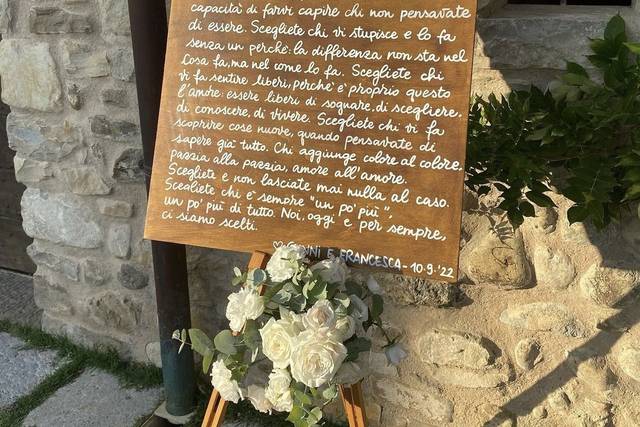 capacità di farvi capire chi non pensavate
di essere. Scegliete chi vi stupisce e lo fa
senza un perché: la differenza non sta nel
cosa fa, ma nel come lo fa. Scegliete chi
vi fa sentire liberi, perché è proprio questo
l'amore: essere liberi di sognare, di scegliere,
di conoscere, di vivere. Scegliete chi vi fa
scoprire cose nuove, quando pensavate di
sapere già tutto. Chi aggiunge colore al colore,
pazzia alla pazzia, amore all'amore.
Scegliete e non lasciate mai nulla al caso.
Scegliete chi è sempre "un po' più",
un po' più di tutto. Noi, oggi e per sempre,
ci siamo scelti.
E FRANCESCA - 10.9.'22